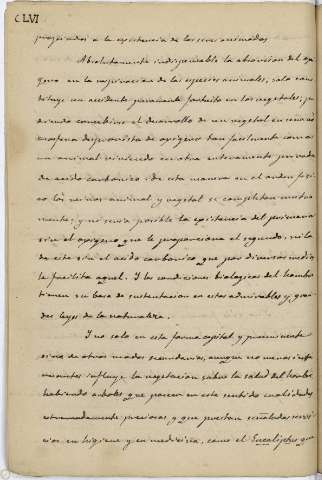 CLVI
propiedades a la existencia de los seres animados.
Absolutamente indispensable la absorcion del oxi
geno en la respiracion de las especies animales, solo cons
tituye un accidente puramente fortuito en los vegetales; pu
diendo concebirse el desarrollo de un vegetal en una at
mosfera desprovista de oxigeno tan facilmente como
un animal viviendo en otra enteramente privada
de acido carbónico: de esta manera en el orden fisi
co los reinos animal, y vegetal se completan mutua
mente; y ni seria posible la existencia del primero
sin el oxigeno que le proporciona el segundo, ni la
de este sin el acido carbonico que por diversos medios
le facilita aquel. Y las condiciones biologicas del hombre
tienen su base de sustentacion en estas admirables y gran
des leyes de la naturaleza.
Y no solo en esta forma capital, y preeminente
sino de otros modos secundarios, aunque no menos inte
resantes influye la vegetacion sobre la salud del hombre
habiendo arboles que poseen en este sentido cualidades
extremadamente preciosas, y que prestan señalados servi
cios en higiene y en medicina, como el Eucaliptus que